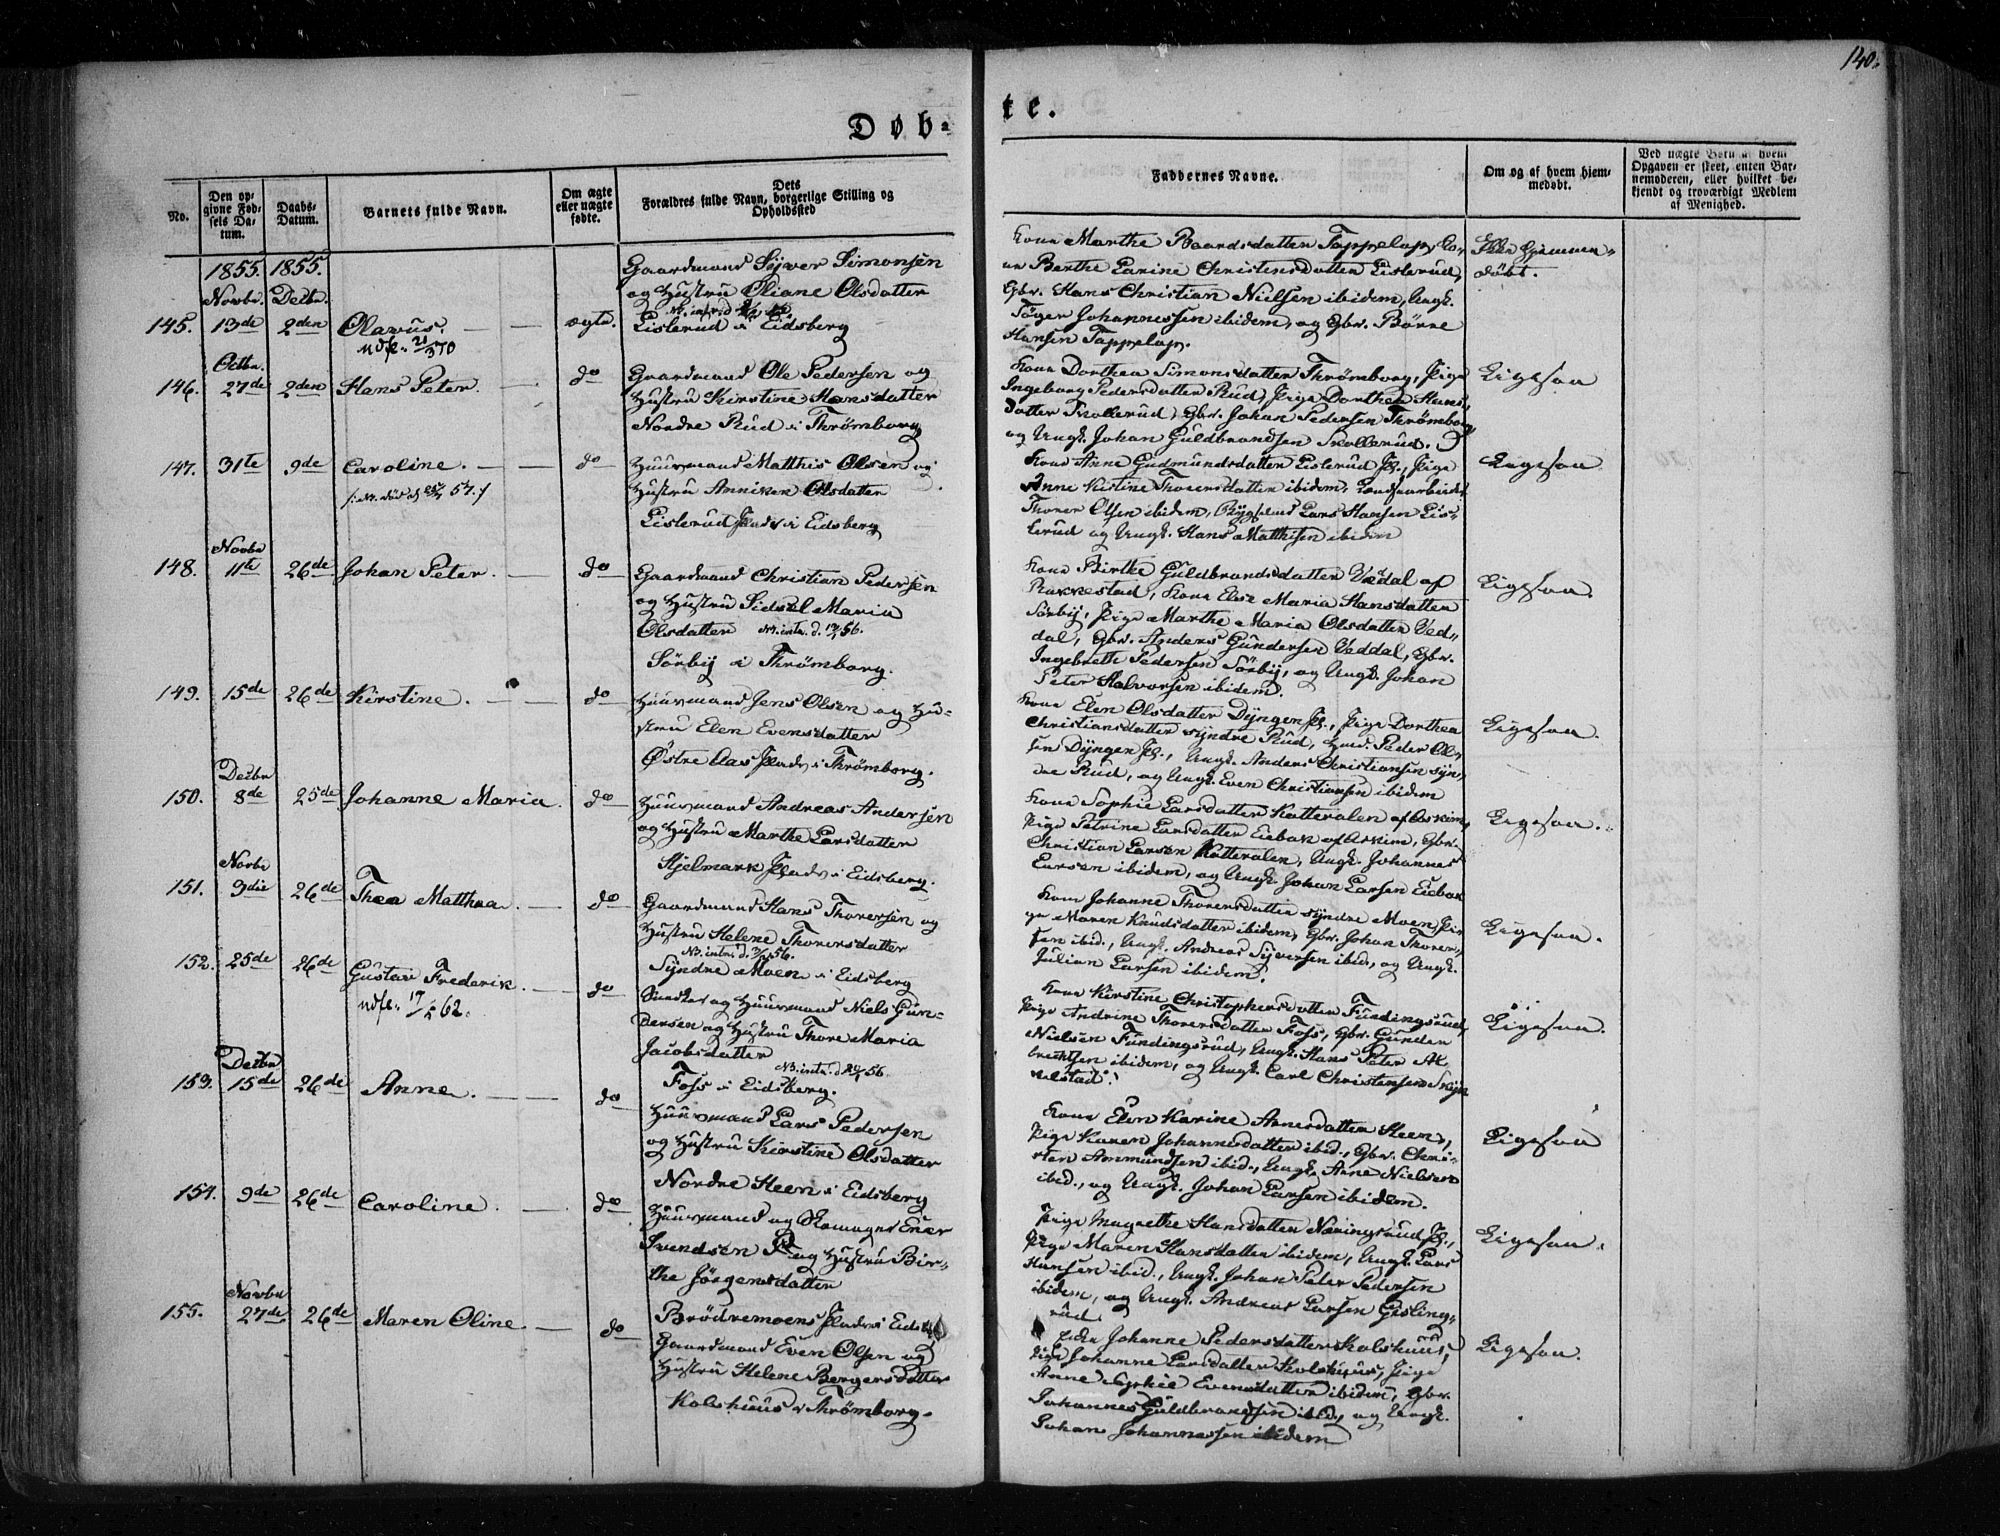 140.
Døb-
te.
No.
Den op-
givne Fød-
sels Da-
tum.
Daabs-
Datum.
Barnets fulde Navn.
Om ægte
eller uægte
fødte.
Dets
Forældres fulde Navn, borgerlige Stilling og
Opholdssted
Faddernes Navne.
Om og af hvem hjem-
medøbt.
Ved uægte Børn af hvem
Opgaven er skeet, enten Bar-
nemoderen, eller hvilket be-
kjendt og troværdigt Medlem
af Menighed.
1855. 1855.
Novbr. Decbr.
145. 13de 2den Olavus. ægte
udfl. 21/3 70
Gaardmand Syver Simonsen
og Hustru Oliane Olsdatter
Lislerud i Eidsberg
Kone Marthe Baardsdatter Tappelop, Ko-
ne Berthe Larine Christensdatter Lislerud,
Gbr. Hans Christian Nielsen ibidem, Ungk.
Töger Johannessen ibidem, og Gbr. Börre
Hansen Tappelop.
Ikke hjemme-
döbt.
Octbr.
146. 27de 2den Hans Peter. do
Gaardmand Ole Pedersen og
Hustru Kirstine Hansdatter
Nordre Rud i Thrömborg
Kone Dorthea Simonsdatter Thrömborg, Pige
Ingeborg Pedersdatter Rud, Pige Dorthea Hans-
datter Trollerud, Gbr. Johan Pedersen Thrömborg
og Ungk. Johan Guldbrandsen Trollerud.
Ligesaa
147. 31te 9de Caroline. do
Huusmand Matthis Olsen og
Hustru Anniken Olsdatter
Lislerud Plads i Eidsberg
Kone Anne Gudmundsdatter Lislerud Pl., Pige
Anne Kirstine Thorersdatter ibidem,
Thorer Olsen ibidem, Lars Hansen Lis-
lerud og Ungk. Hans Matthisen ibidem
Ligesaa.
Novbr
148. 11te 26de Johan Peter. do
Gaardmand Christian Pedersen
og Hustru Sidsel Maria
Olsdatter
Sörby i Thrömborg.
Kone Birthe Guldbrandsdatter Vedal af
Rakkestad, Kone Else Maria Hansdatter
Sörby, Pige Marthe Maria Olsdatter Ved-
dal, Gbr. Anders Gundersen Veddal, Gbr.
Ingebreth Pedersen Sörby, og Ungk. Johan
Peter Halvorsen ibidem.
Ligesaa.
149. 15de 26de Kirstine. do
Huusmand Jens Olsen og Hu-
stru Elen Evensdatter
Østre Aas Plads i Thrömborg.
Kone Elen Olsdatter Dyngen Pl., Pige Dorthea
Christiansdatter syndre Rud, Hmd. Peder Ol-
sen Dyngen Pl., Ungk. Anders Christiansen syn-
dre Rud, og Ungk. Even Christiansen ibidem
Ligesaa.
Decbr
150. 8de 25de Johanne Maria. do
Huusmand Andreas Andersen
og Hustru Marthe Larsdatter
Hjelmark Plads i Eidsberg.
Kone Sophie Larsdatter Katteralen af Askim,
Pige Petrine Larsdatter Eiebak af Askim, Gbr.
Christian Larsen Katteralen, Ungk. Johannes
Larsen ibidem, og Ungk. Johan Larsen Eiebak
Ligesaa.
Novbr
151. 9die 26de Thea Matthea. do
Gaardmand Hans Thorersen og
Hustru Helene Thorersdatter
Syndre Moen i Eidsberg
Kone Johanne Thorersdatter syndre Moen, Pi-
ge Maren Knudsdatter ibidem, Gbr. Johan Thorer-
sen ibid., Ungk. Andreas Syversen ibid., og Ungk.
Julian Larsen ibidem.
Ligesaa.
152. 25de 26de Gustav Frederik. do
udfl. 17/5 62.
og Huusmand Niels Gun-
dersen og Hustru Thore Maria
Jacobsdatter
Foss i Eidsberg.
Kone Kirstine Christophersdatter Fundingsrud,
Pige Andrine Thorersdatter Foss, Gbr. Gunder
Nielsen Fundingsrud, Ungk. Hans Peter Al-
brethsen ibidem, og Ungk. Carl Christensen
Ligesaa.
Decbr
153. 15de 26de Anne. do
Huusmand Lars Pedersen
og Hustru Kirstine Olsdatter
Nordre Heen i Eidsberg
Kone Elen Karine Arnesdatter Heen,
Pige Karen Johannesdatter ibid., Gbr. Chri-
sten Ammundsen ibid., Ungk. Arne Nielsen
ibid., og Ungk. Johan Larsen ibidem.
Ligesaa
154. 9de 26de Caroline. do
Huusmand og Skomager Ener
Svendsen og Hustru Bir-
the Jörgensdatter
Brödremoens Plads i Eidsb
Pige Magrethe Hansdatter Næringsrud Pl.,
Pige Maren Hansdatter ibidem, Ungk. Lars
Hansen ibid., Ungk. Johan Peter Pedersen
ibidem, og Ungk. Andreas Larsen Gisling-
rud
Ligesaa.
Novbr
155. 27de 26de Maren Oline. do
Gaardmand Even Olsen og
Hustru Helene Bergersdatter
Kolshuus i Thrömborg.
Johanne Pedersdatter Kolshuus,
Pige Johanne Larsdatter Kolshuus, Pige
Anne Sophie Evensdatter ibidem, Gbr.
Johannes Guldbrandsen ibid., og Ungk.
Johan Johannessen ibidem
Ligesaa.